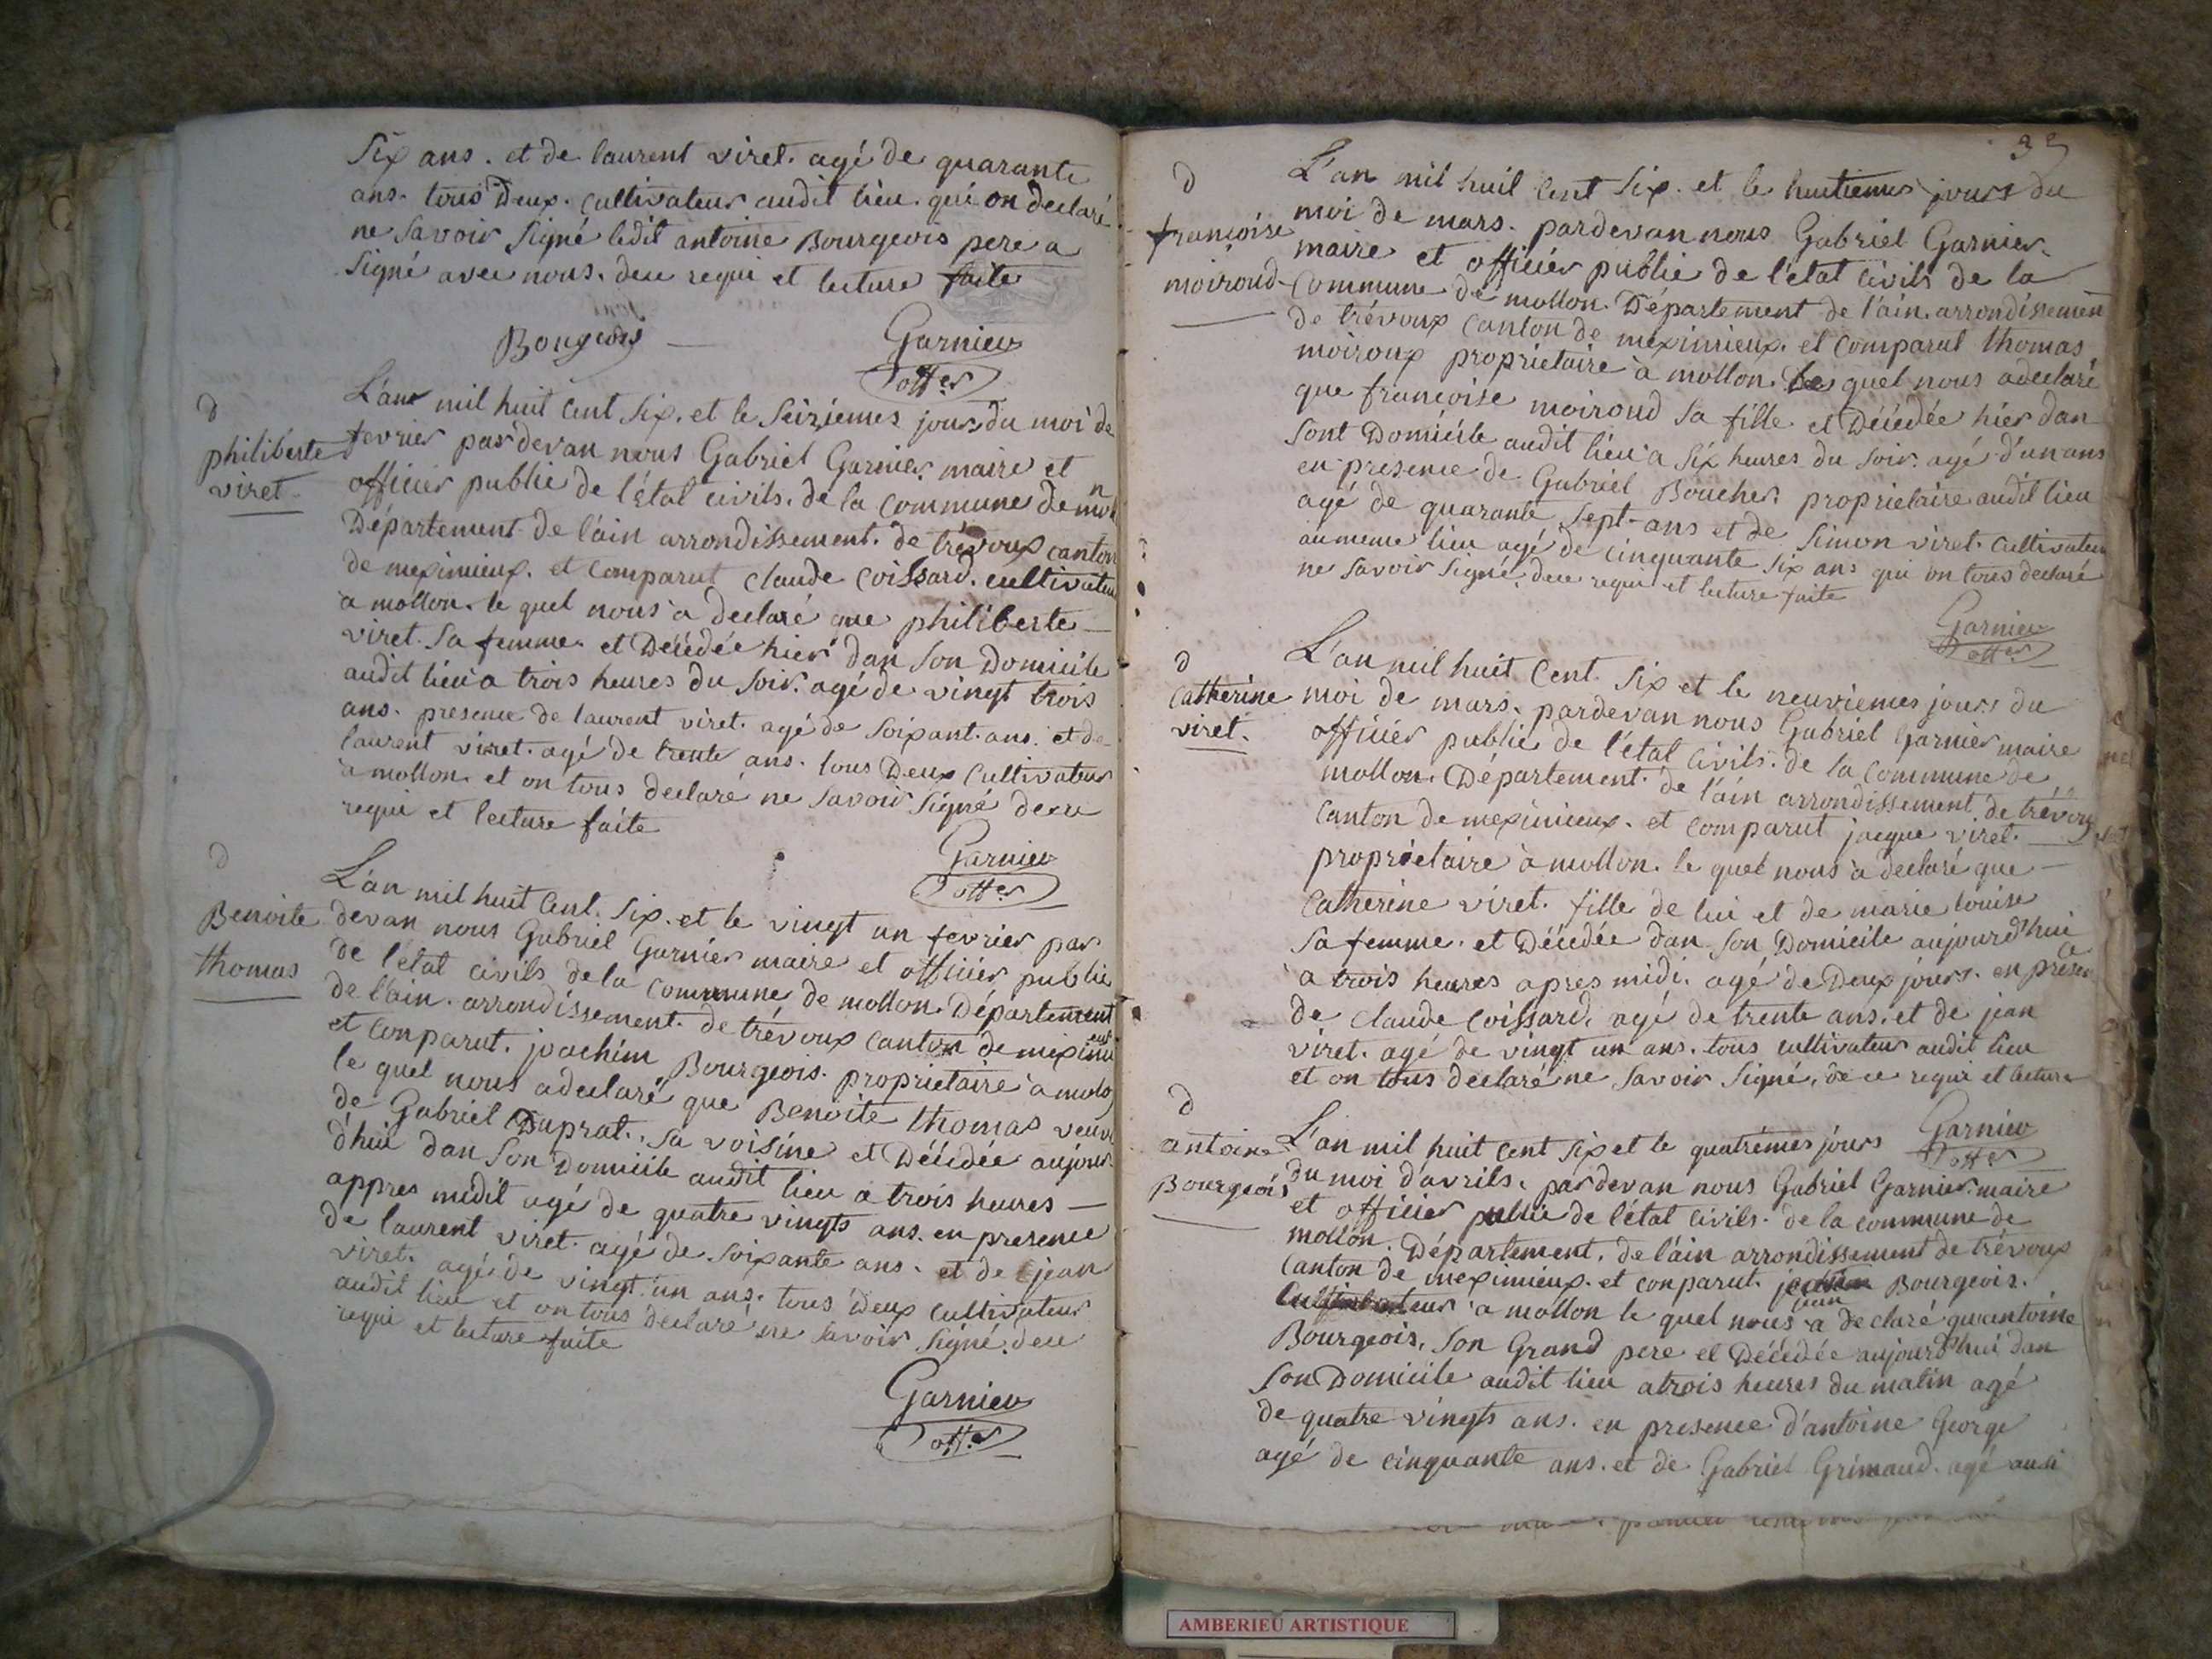 Six ans. et de laurent viret. agé de quarante
ans. tous Deux. cultivateur audit lieu. qui on declaré
ne Savoir Signé ledit antoine Bourgeois pere a
Signé avec nous. dece requi et lecture faite
Bourgeois
Garnier
offer
d
philiberte
viret.
L'an mil huit Cent Six. et le Seiziemes jours du moi de
fevrier par devan nous Gabriel Garnier maire et
officier public de l'état civils. de la Commune de mol
Département de l'ain arrondissement. de trévoux canton
de meximieux. et Comparut Claude Coissard. cultivateur
a mollon. le quel nous a declaré que philiberte
viret. Sa femme. et Décédée hier dan Son Domicile
audit lieu a trois heures du Soir. agé de vingt trois
ans. presence de laurent viret. agé de Soixant. ans. et de
laurent viret. agé de trente ans. tous Deux Cultivateur
a mollon. et on tous declaré ne Savoir Signé dece
requi et lecture faite
Garnier
offer
d
Benoite
thomas
L'an mil huit Cent. Six. et le vingt un fevrier par
devan nous Gabriel Garnier maire et officier public
de l'état civils de la Commune de mollon. Département
de l'ain. arrondissement. de trévoux Canton de meximieux
et Conparut. joachim Bourgeois. proprietaire a molo
le quel nous a declaré que Benoite thomas veuve
de Gabriel Duprat., Sa voisine et Décédée aujour
d'hui dan Son Domicile audit lieu a trois heures
appres midit agé de quatre vingts ans. en presence
de laurent viret. agé de Soixante ans. et de jean
viret. agé de vingt un ans. tous Deux Cultivateur
audit lieu et on tous declaré ne Savoir Signé. dece
requi et lecture faite
Garnier
offer
d
françoise
moiroud
L'an mil huit Cent Six. et le huitiemes jours du
moi de mars. pardevan nous Gabriel Garnier.
maire et officier public de l'état Civils de la
Commune de mollon. Département de l'ain. arrondissemen
de trévoux Canton de meximieux. et Comparut thomas
moiroux proprietaire a mollon. Lequel nous a declaré
que françoise moiroud Sa fille et Décédée hier dan
Sont Domicile audit lieu a Six heures du Soir. agé d'un ans
en presence de Gabriel Boucher. proprietaire audit lieu
agé de quarante Sept-ans et de Simon viret. Cultivateur
au meme lieu agé de Cinquante Six ans qui on tous declaré
ne Savoir Signé. dece requi et lecture faite
Garnier
offer
d
Catherine
viret.
L'an mil huit Cent. Six et le neuviemes jours du
moi de mars. pardevan nous Gabriel Garnier maire
officier public de l'état Civils. de la Commune de
mollon. Département. de l'ain arrondissement de trévoux
Canton de meximieux. et Comparut jacque viret.
proprietaire a mollon. le quel nous a declaré que
Catherine viret. fille de lui et de marie louise
Sa femme. et Décédée dan Son Domicile aujourd'hui
a trois heures apres midi. agé de Deux jours. en présence
de Claude Coissard. agé de trente ans. et de jean
viret. agé de vingt un ans. tous cultivateur audit lieu
et on tous declaré ne Savoir Signé, de ce requi et lecture
Garnier
offer
d
antoine
Bourgeois
L'an mil huit Cent Six et le quatrémes jours
du moi d'avrils. pardevan nous Gabriel Garnier. maire
et officier public de l'état Civils. de la Commune de
mollon. Département. de l'ain arrondissement de trévoux
Canton de meximieux. et Conparut. Bourgeois.
a mollon le quel nous a declaré qu'antoine
Bourgeois. Son Grand pere et Décédée aujourd'hui dan
Son Domicile audit lieu a trois heures du matin agé
de quatre vingts ans. en presence d'antoine George
agé de Cinquante ans. et de Gabriel Grimaud. agé ausi
AMBERIEU ARTISTIQUE